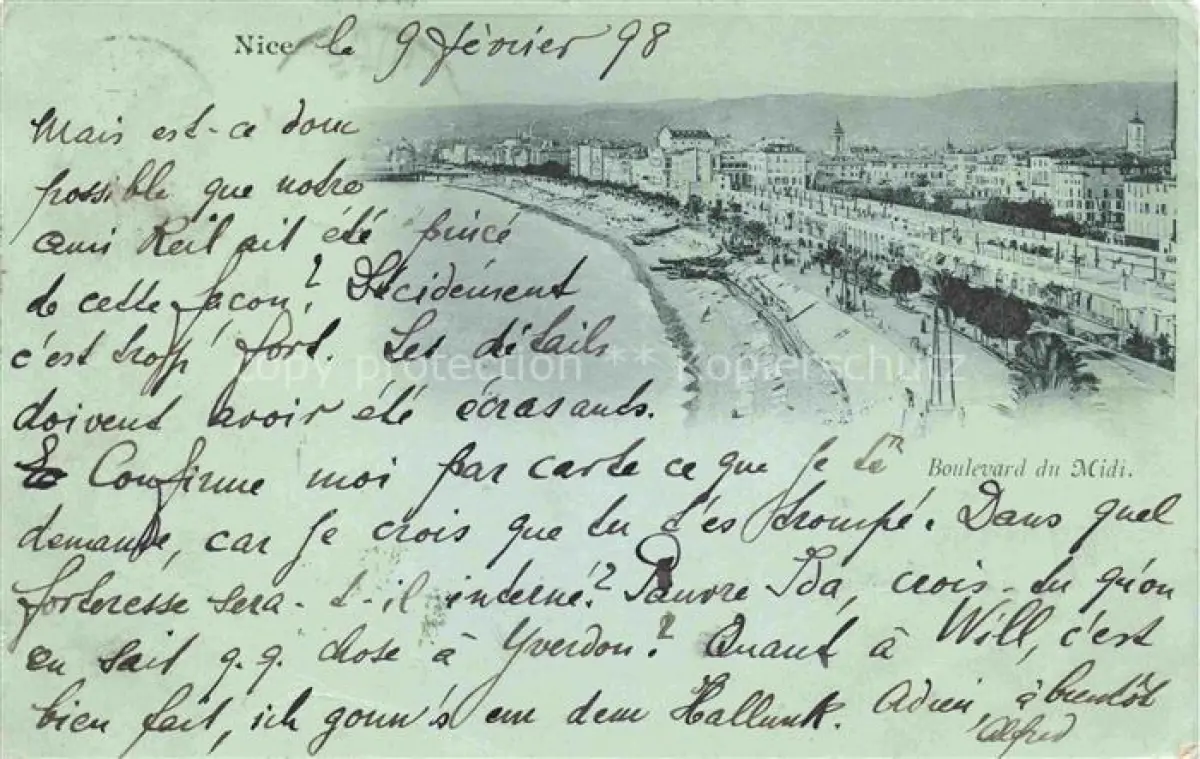 Nice le 9 février 98
Mais est-ce donc
possible que notre
ami Reil ait été pincé
de cette façon? Décidément
c'est trop fort. Les détails
doivent avoir été écrasants.
Confirme moi par carte ce que je te
Boulevard du Midi.
demande, car je crois que tu t'es trompé. Dans quel
forteresse sera-t-il interné? Pauvre Ida, crois-tu qu'on
en sait q.q. chose à Yverdon? Quant à Will, c'est
bien fait, ich gonn's em dem Hallunk. Adieu, à bientôt
Alfred
copy protection ** Kopierschutz